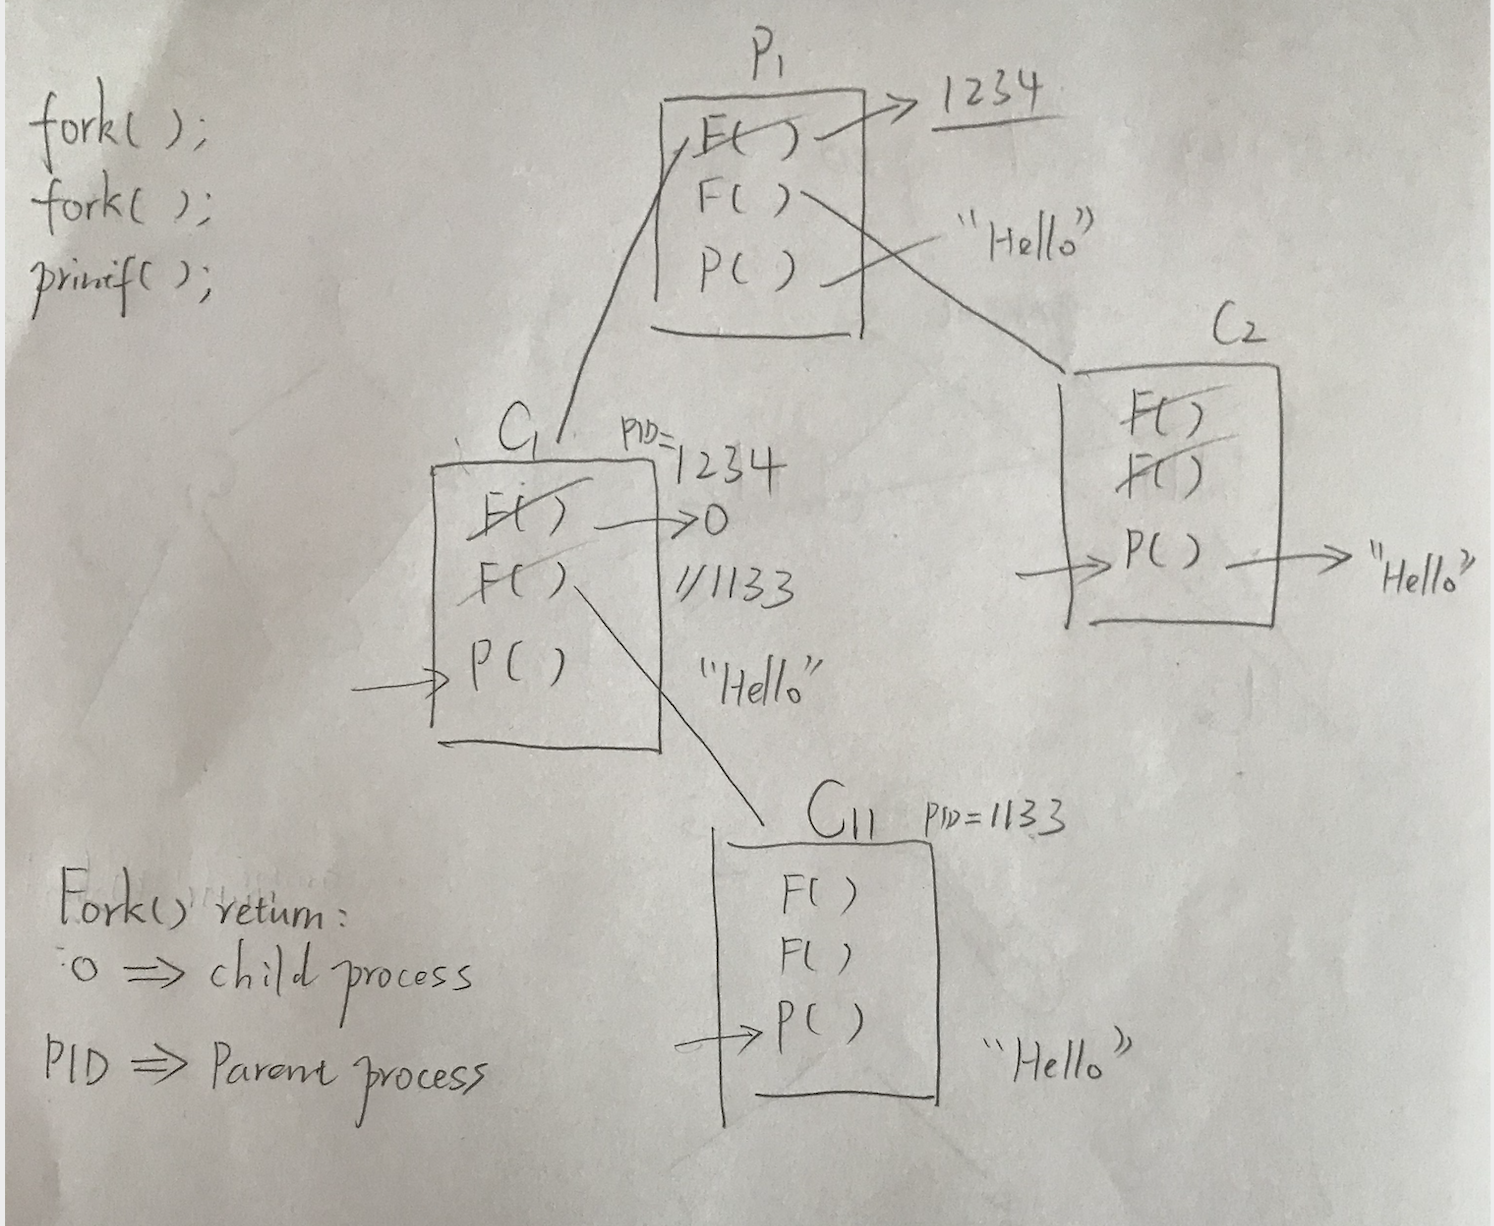 fork( );
fork( );
printf( );
P1
F( )
1234
F( )
P( )
"Hello"
C2
F( )
F( )
P( )
"Hello"
C1
PID=
1234
F( )
0
F( )
//1133
P( )
"Hello"
C11
PID=1133
F( )
F( )
P( )
"Hello"
Fork() return:
0 ⇒ child process
PID ⇒ Parent process